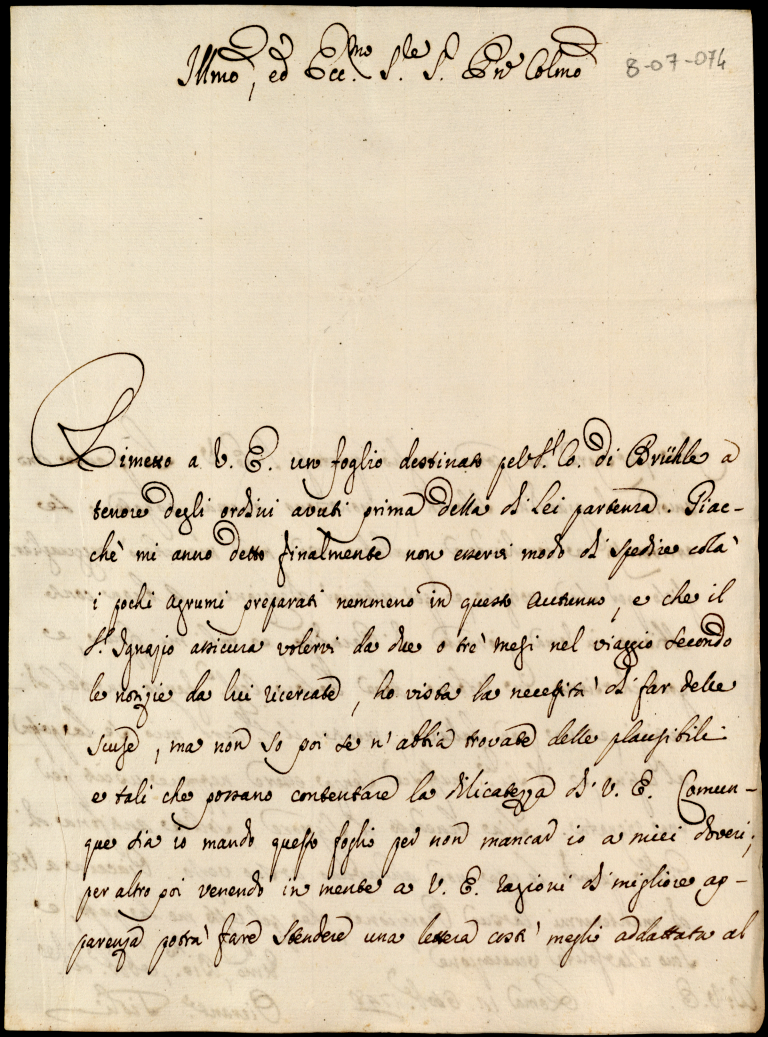 Illmo, ed Ecc.mo S.re S.r Prñ Colmo
8-07-074
Rimetto a V. E. un foglio destinato pel S.r Co. di Brühle a
tenore degli ordini avuti prima della di Lei partenza. Giac-
chè mi anno detto finalmente non esservi modo di spedire colà
i pochi agrumi preparati nemmeno in questo Autunno, e che il
S.r Ignazio assicura volervi da due o trè mesi nel viaggio secondo
le notizie da lui ricercate, ho vista la necessità di far delle
scuse, ma non so poi se n'abbia trovate delle plausibili
e tali che possano contentare la dilicatezza di V. E. Comun-
que sia io mando questo foglio per non mancar io a miei doveri;
per altro poi venendo in mente a V. E. ragioni di migliore ap-
parenza potrà fare stendere una lettera costì meglio addattata al